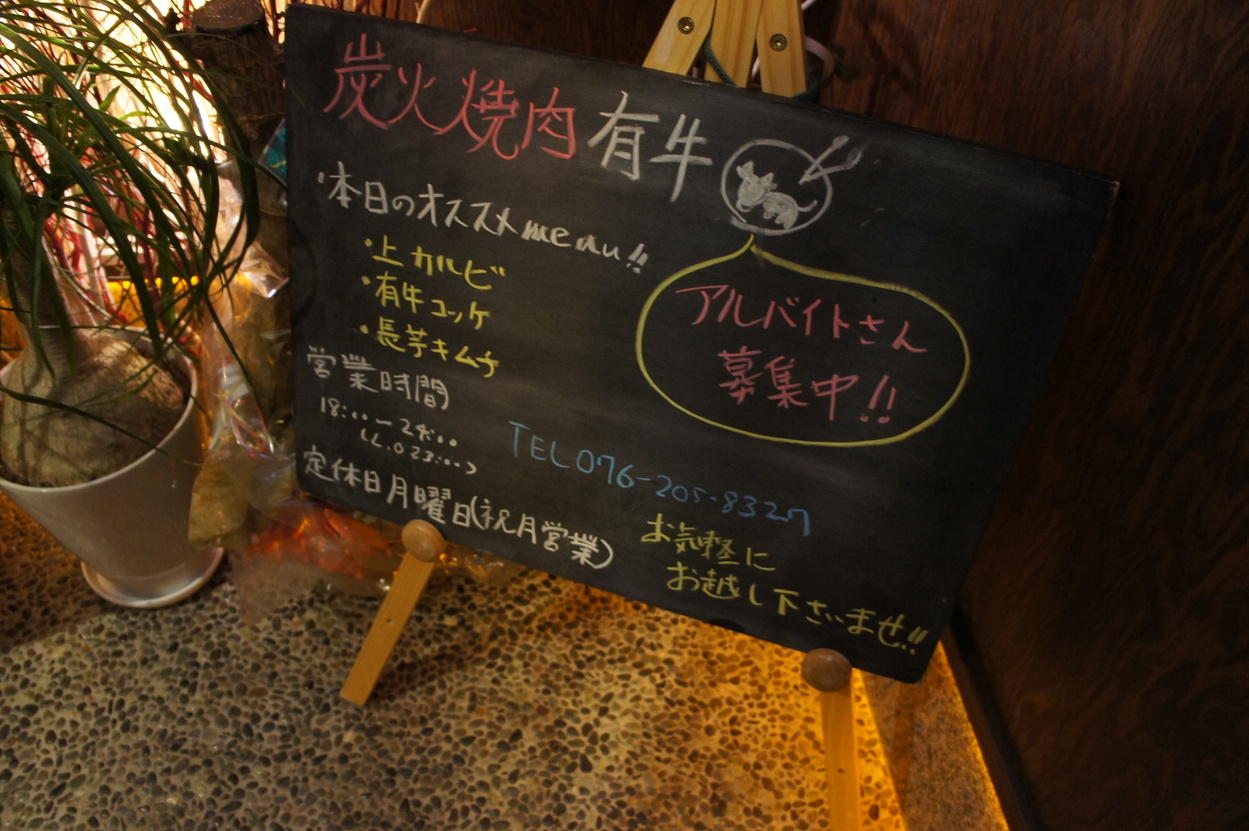 炭火焼肉 有牛
・本日のオススメmenu!!
・上カルビ
・有牛ユッケ
・長芋キムチ
営業時間
18:00〜24:00
(L.O 23:00)
定休日月曜日(祝月営業)
アルバイトさん
募集中!!
TEL 076-205-8327
お気軽に
お越し下さいませ!!